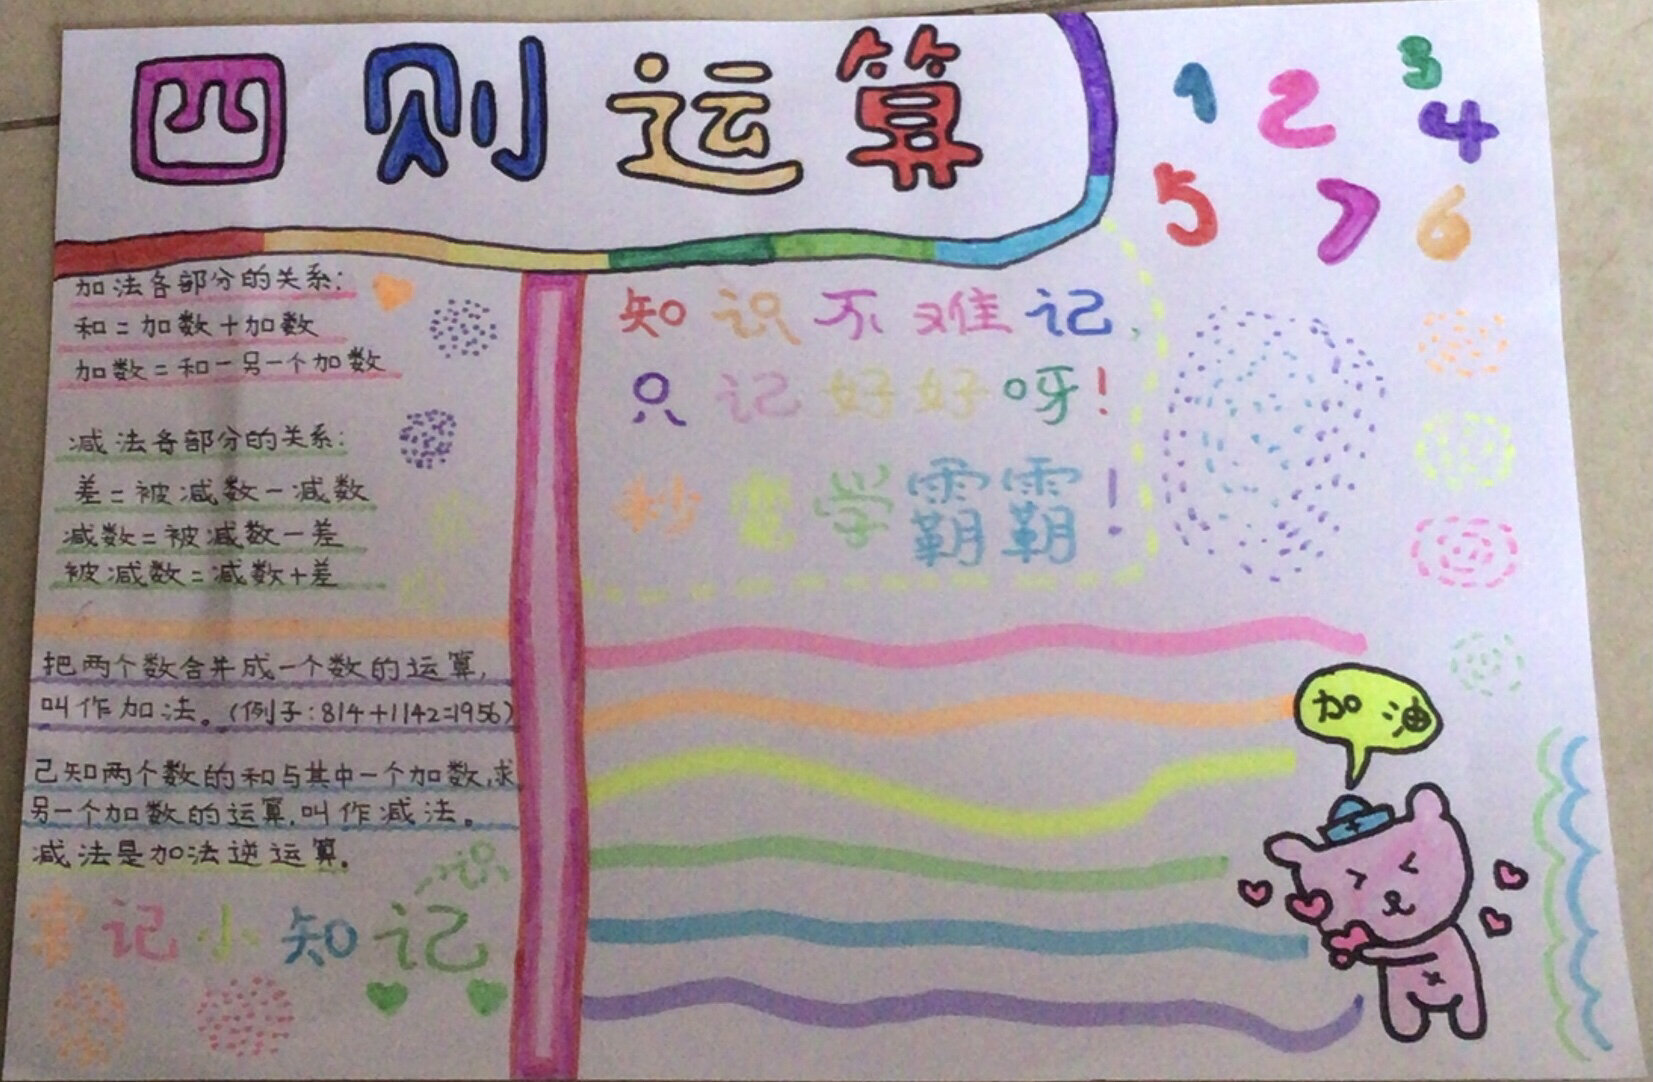 四则运算
1 2 3
4
5 7 6
加法各部分的关系:
和=加数+加数
加数=和-另一个加数
减法各部分的关系:
差=被减数-减数
减数=被减数-差
被减数=减数+差
把两个数合并成一个数的运算,
叫作加法。(例子:814+1142=1956)
己知两个数的和与其中一个加数,求
另一个加数的运算,叫作减法。
减法是加法逆运算.
记小知
识
记
知识不难记,
只记好好呀!
秒变学霸霸!
加油